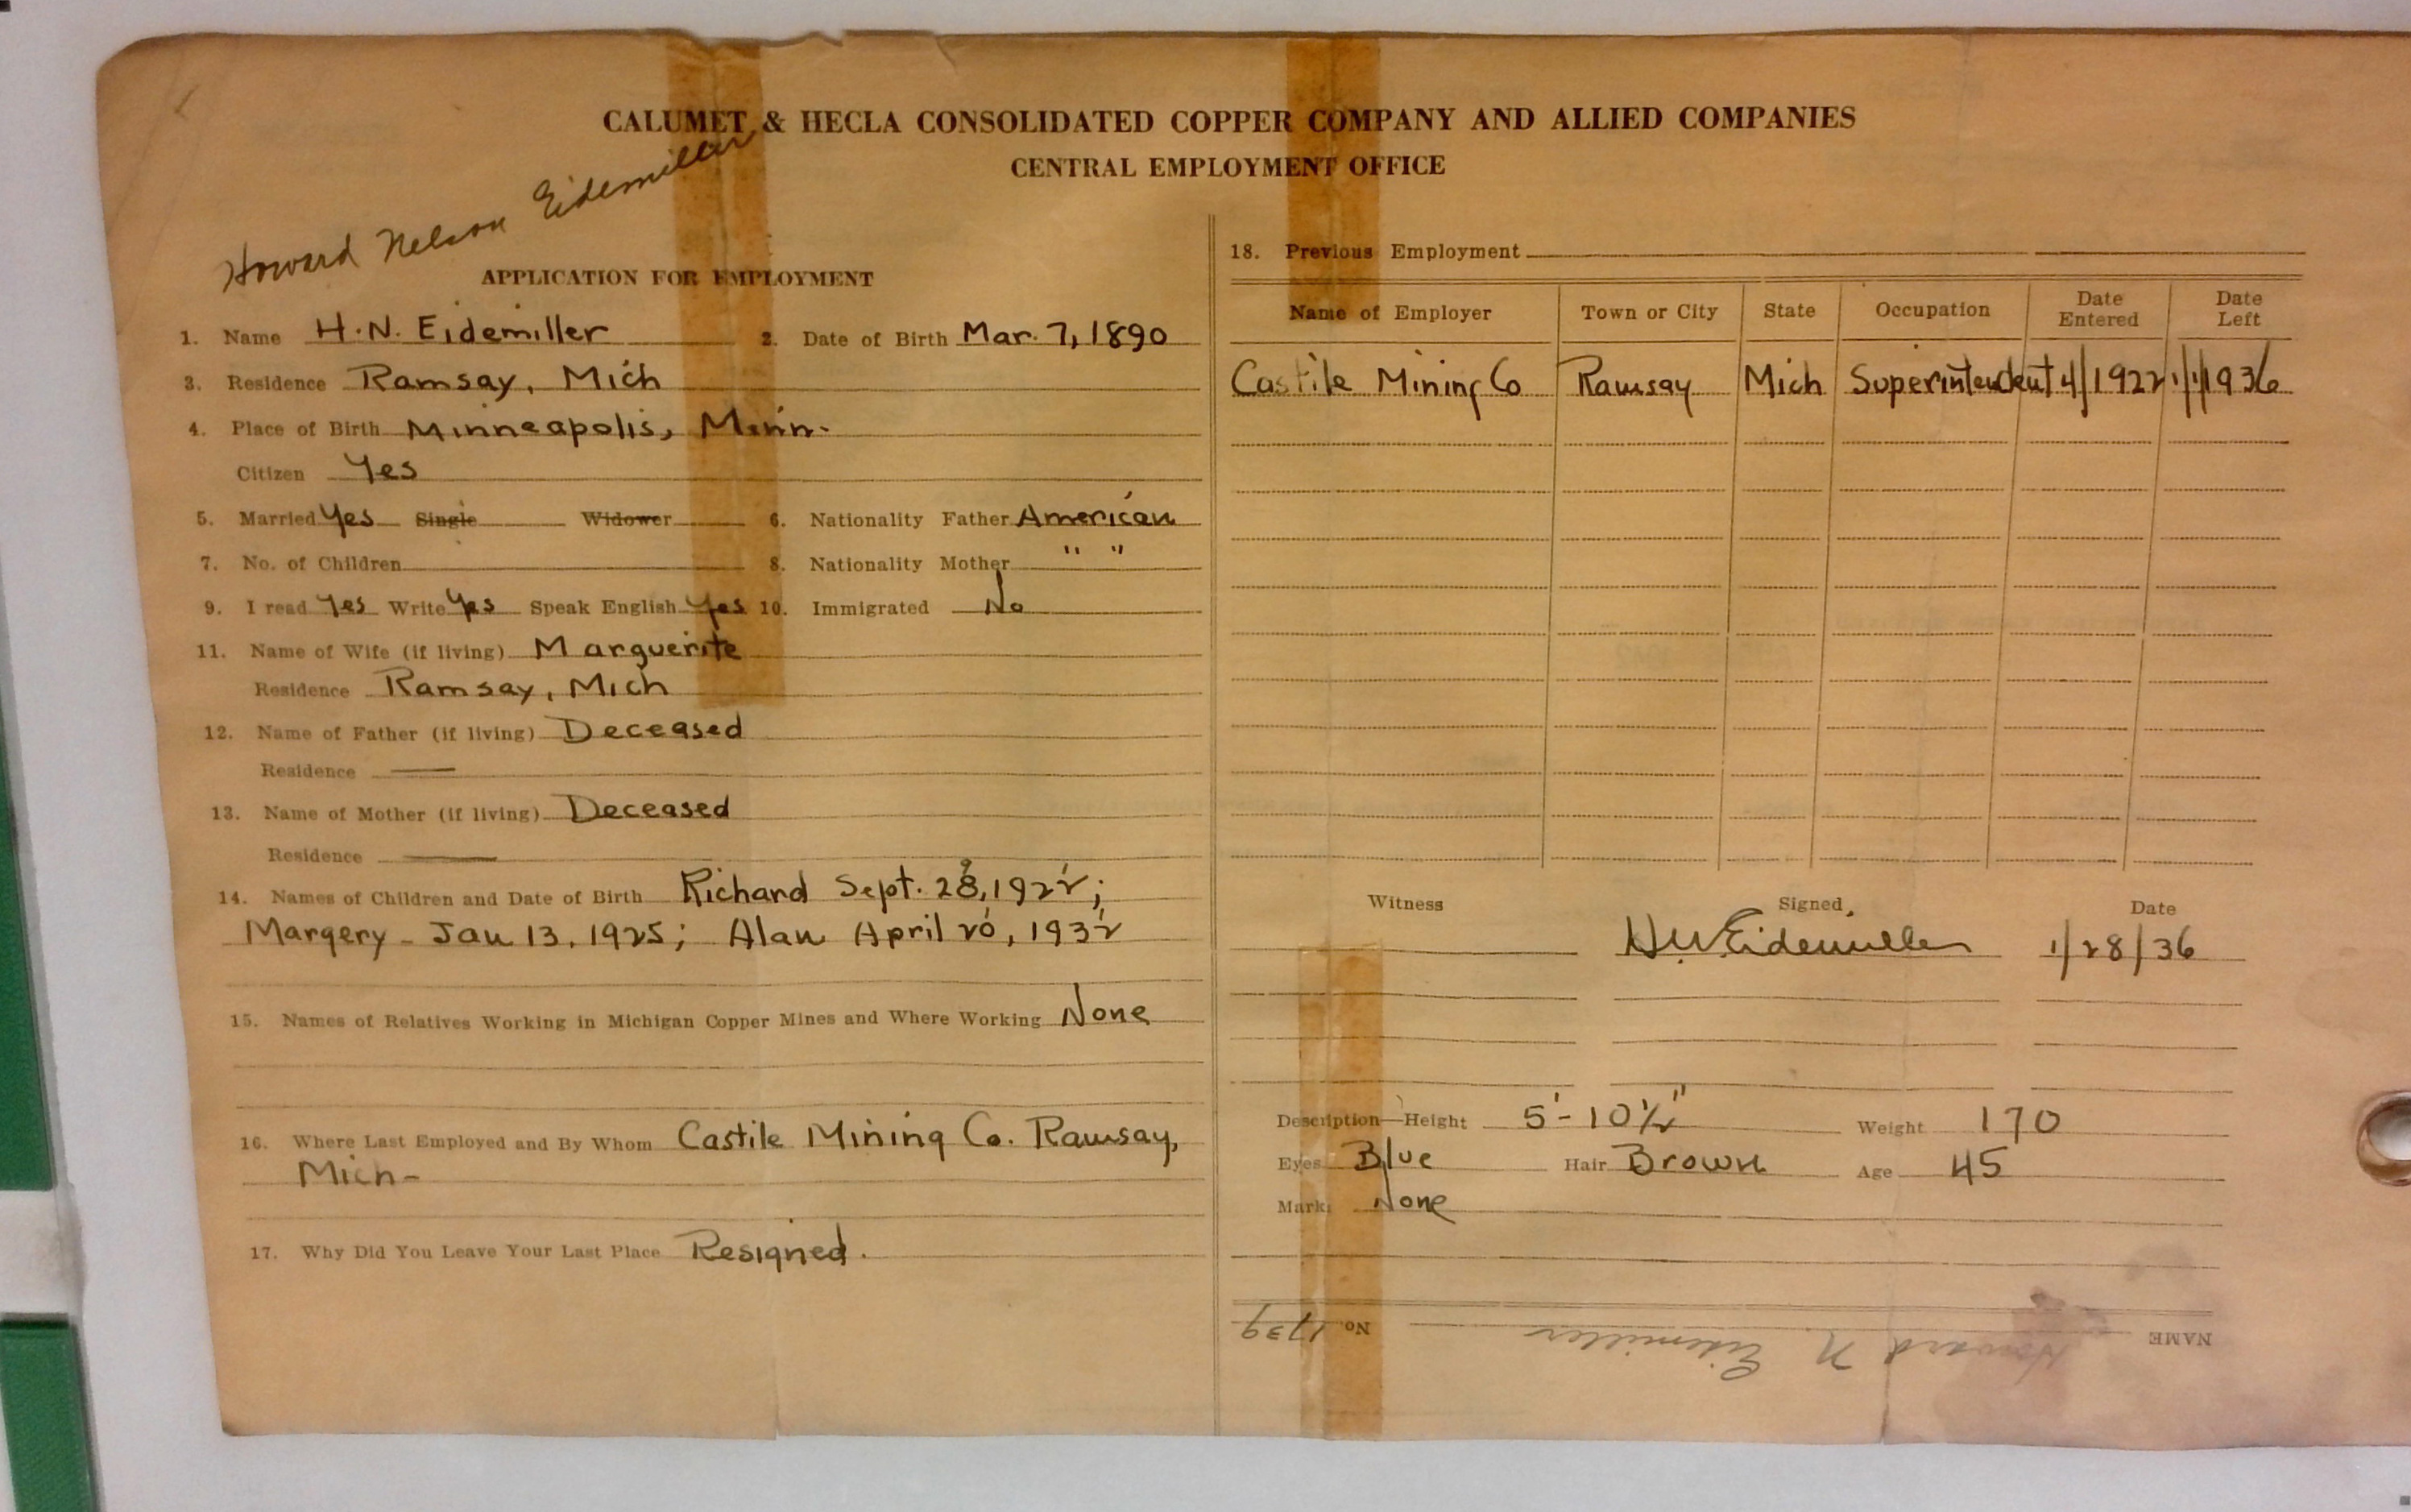 CALUMET & HECLA CONSOLIDATED COPPER COMPANY AND ALLIED COMPANIES
CENTRAL EMPLOYMENT OFFICE
Howard Nelson Eidemiller
APPLICATION FOR EMPLOYMENT
1. Name H.N. Eidemiller 2. Date of Birth Mar. 7, 1890
3. Residence Ramsay, Mich
4. Place of Birth Minneapolis, Minn.
Citizen Yes
5. Married Yes Single Widower 6. Nationality Father American
7. No. of Children 8. Nationality Mother " "
9. I read Yes Write Yes Speak English Yes 10. Immigrated No
11. Name of Wife (if living) Marguerite
Residence Ramsay, Mich
12. Name of Father (if living) Deceased
Residence —
13. Name of Mother (if living) Deceased
Residence —
14. Names of Children and Date of Birth Richard Sept. 28, 1922;
Margery - Jan 13, 1925; Alan April 20, 1932
15. Names of Relatives Working in Michigan Copper Mines and Where Working None
16. Where Last Employed and By Whom Castile Mining Co. Ramsay,
Mich-
17. Why Did You Leave Your Last Place Resigned.
18. Previous Employment
Name of Employer Town or City State Occupation Date Entered Date Left
Castile Mining Co Ramsay Mich Superintendent 4/1922 1/1/1936
Witness Signed, Date
H.N. Eidemiller 1/28/36
Description—Height 5'-10 1/2" Weight 170
Eyes Blue Hair Brown Age 45
Marks None
NAME Howard N. Eidemiller No 1739